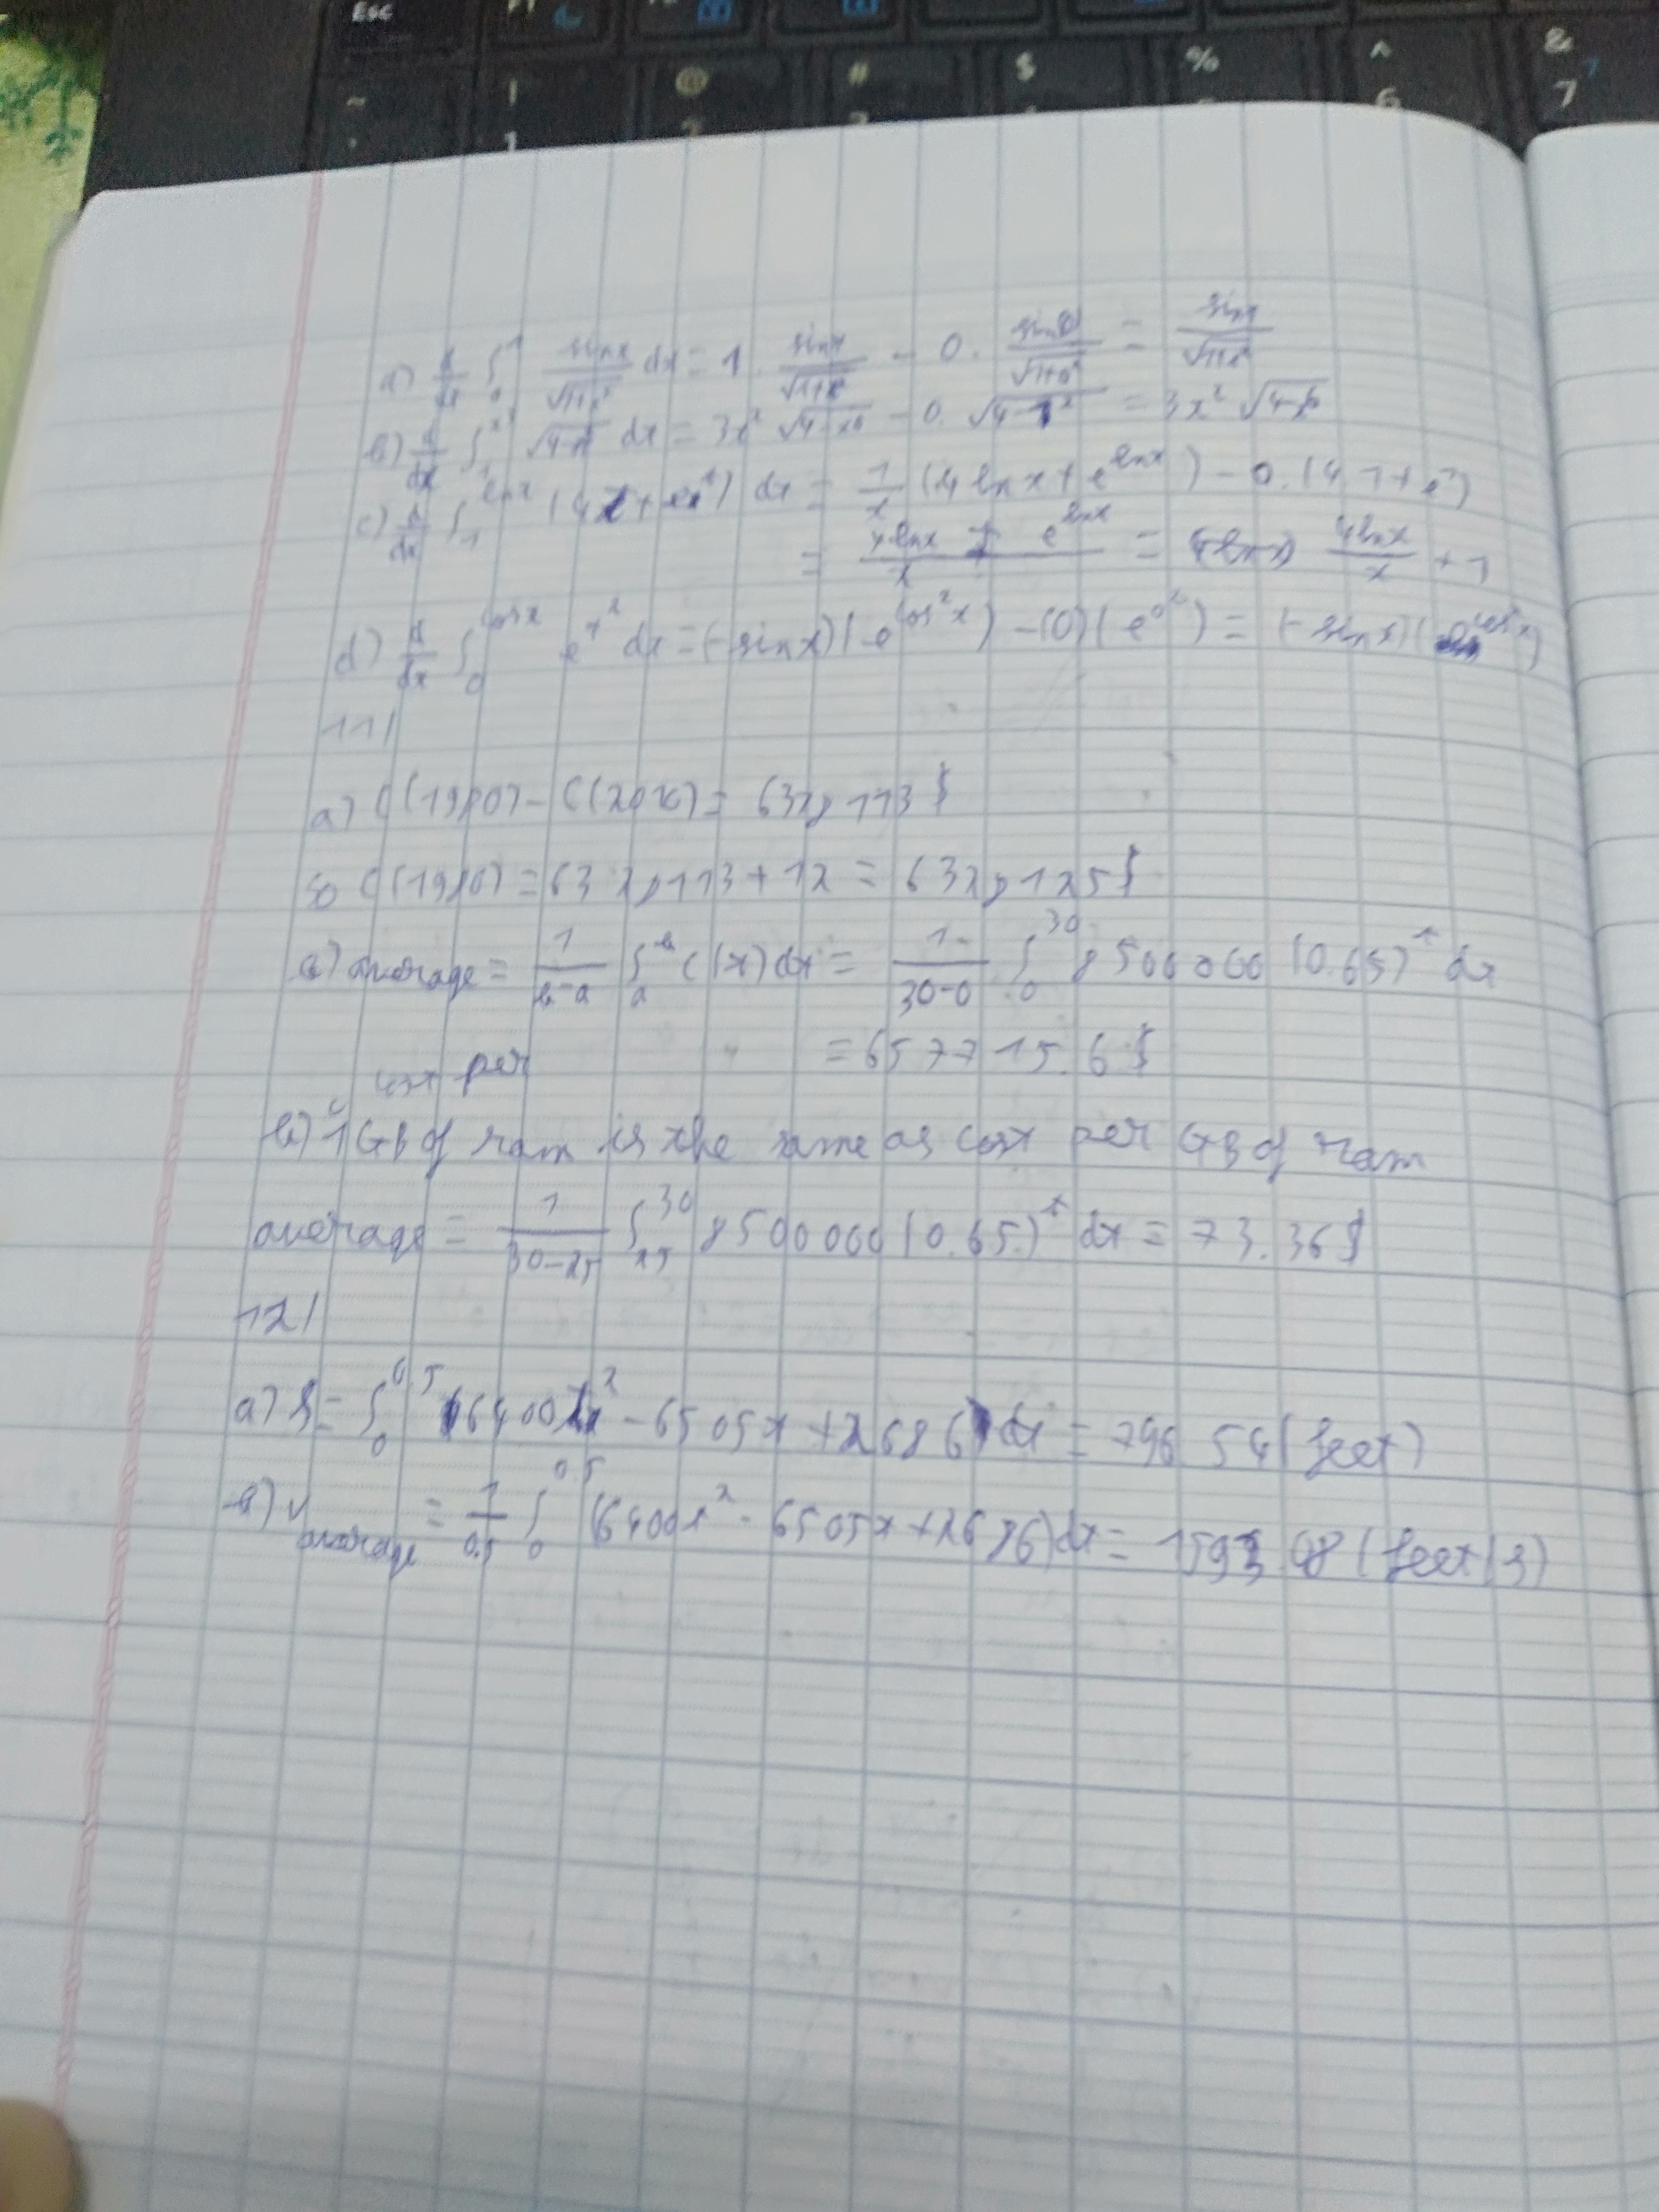 Esc F1
~ ! @ # $ % ^ &
1 6 7
a) d/dx ∫₀ˣ sinx/√(1+x²) dx = 1. sinx/√(1+x²) - 0. sin0/√(1+0²) = sinx/√(1+x²)
b) d/dx ∫₁^(x³) √(4-x²) dx = 3x² √(4-x⁶) - 0. √(4-1²) = 3x² √(4-x⁶)
c) d/dx ∫₁^(lnx) (4x+eˣ) dx = 1/x (4lnx + e^(lnx)) - 0.(4.1+e¹)
= (4lnx + e^(lnx))/x = 4lnx/x + 1
d) d/dx ∫₀^(cosx) e^(x²) dx = (-sinx)(e^(cos²x)) - (0)(e^(0²)) = (-sinx)(e^(cos²x))
11/
a) C(1980) - C(2010) = 632,113$
so C(1980) = 632,113+12 = 632,125$
a) average = 1/(b-a) ∫ₐᵇ C(x)dx = 1/(30-0) ∫₀³⁰ 8500000(0.65)ˣ dx
= 657715.6$
cost per
b) 1GB of ram is the same as cost per GB of ram
average = 1/(30-25) ∫₂₅³⁰ 8500000(0.65)ˣ dx = 73.36$
12/
a) S = ∫₀^0.5 (6400x² - 6505x + 2686)dx = 796.54(feet)
b) v average = 1/0.5 ∫₀^0.5 (6400x² - 6505x + 2686)dx = 1593.08(feet/s)